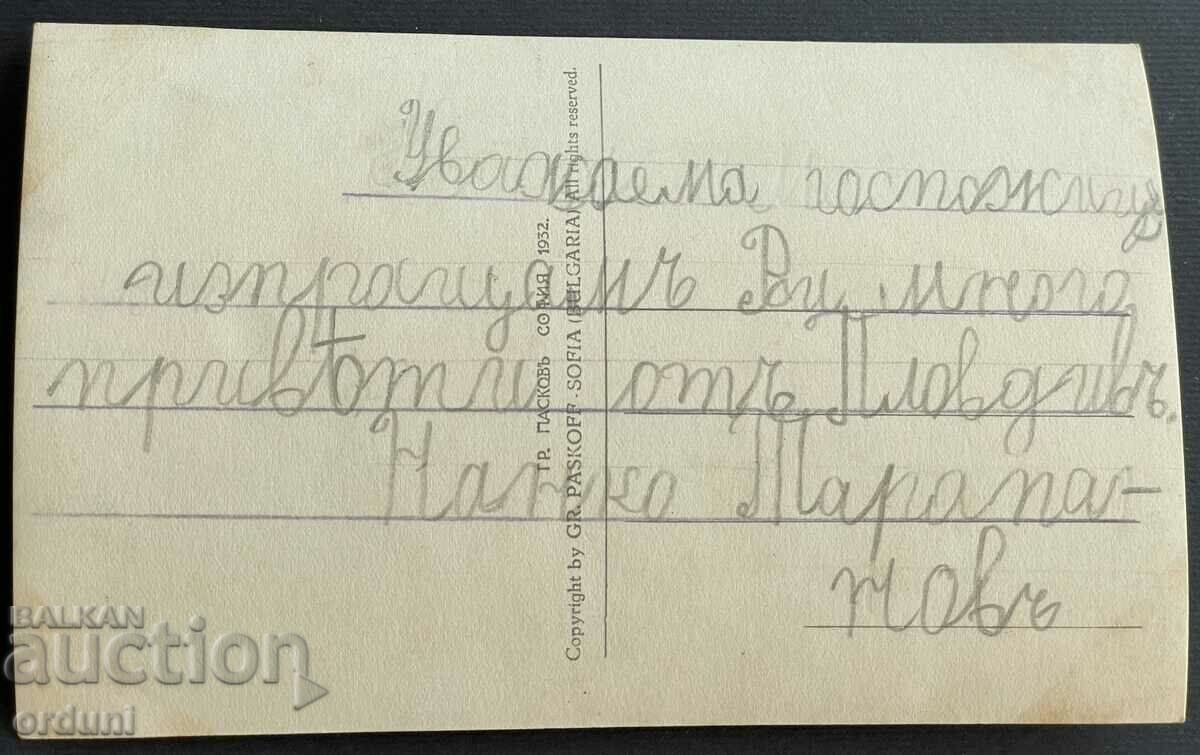 Уважаема госпожицѫ
изпращамъ Ви много
привѣти отъ Пловдивъ.
Нанко Тарапа-
новъ
ГР. ПАСКОВЪ СОФИЯ 1932.
Copyright by GR. PASKOFF - SOFIA (BULGARIA) All rights reserved.
BALKAN
auction
orduni